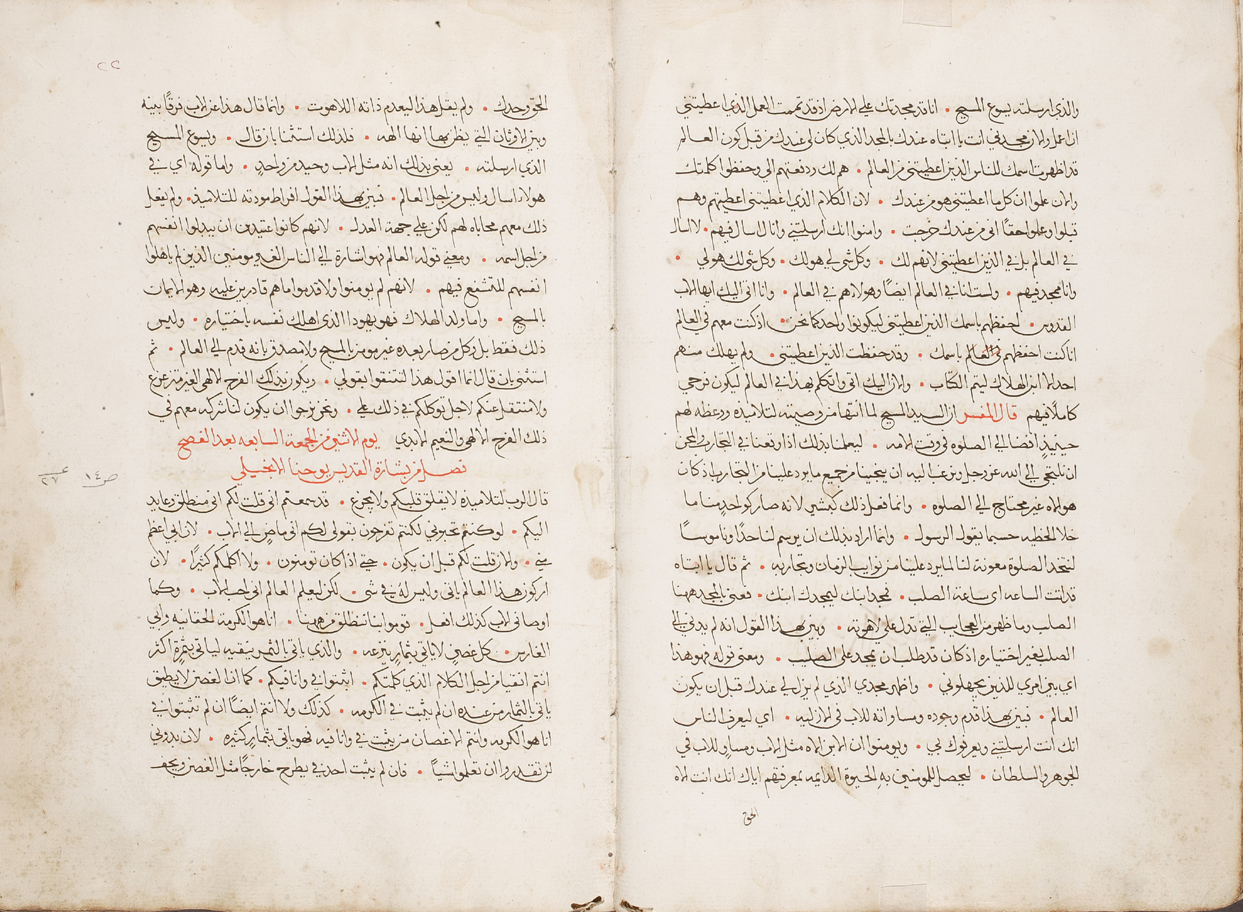 والذي ارسلته يسوع المسيح • انا قد مجدتك على الارض اذ قد تممت العمل الذي اعطيتني
ان اعمله والان مجدني انت يا ابتاه عندك بالمجد الذي كان لي عندك من قبل كون العالم
قد اظهرت اسمك للناس الذين اعطيتني من العالم • هم لك ودفعتهم الي وحفظوا كلمتك
والان علموا ان كل ما اعطيتني هو من عندك • لان الكلام الذي اعطيتني اعطيتهم وهم
قبلوا وعلموا حقًا اني من عندك خرجت • وامنوا انك ارسلتني وانا اسال فيهم • لا اسال
في العالم بل في الذين اعطيتني لانهم لك • وكل شي لي هو لك • وكل شي لك هو لي •
وانا ممجد فيهم • ولست انا في العالم ايضًا وهولاء هم في العالم • وانا اتي اليك ايها الاب
القدوس • احفظهم باسمك الذين اعطيتني ليكونوا واحد كما نحن • اذ كنت معهم في العالم
انا كنت احفظهم باسمك • وقد حفظت الذين اعطيتني • ولم يهلك منهم
احد الا ابن الهلاك ليتم الكتاب • والان اليك اتي واتكلم بهذا في العالم ليكون فرحي
كاملًا فيهم • قال المفسر ان السيد المسيح لما انتها من وصيته لتلاميذه ووعظه لهم
حينيذٍ افضا الي الصلوه في وقت الامه • ليعلمنا بذلك اذا وقعنا في التجارب والمحن
ان نلتجي الي الله عز وجل ونرغب اليه ان ينجينا من جميع ما يرد علينا من التجارب اذ كان
هو الاه غير محتاج الي الصلوه • وانما فعل ذلك كبشري لانه صار كواحدٍ منا ما
خلا الخطيه حسبما يقول الرسول • وانما اراد بذلك ان يرسم لنا حدًا وناموسًا
لنتخد الصلوة معونة لنا لما يرد علينا من نوايب الزمان وتجاربه • ثم قال يا ابتاه
قد اتت الساعه اي ساعة الصلب • فمجد ابنك ليمجدك ابنك • فعني بالمجد ههنا
الصلب وما ظهر من العجايب التي تدل علي لاهوته • وبين بهذا القول انه لم يدني الي
الصلب بغير اختياره اذ كان قد طلب ان يمجد على الصليب • ومعني قوله فهو هذا
اي بين امري للذين يجهلوني • واظهر مجدي الذي لم يزل لي عندك قبل ان يكون
العالم • فبين بهذا قدم وجوده ومساواته للاب في الازليه • اي ليعرف الناس
انك انت ارسلتني ويعرفوك بي • ويومنوا ان الابن الاه مثل الاب ومساوٍ للاب في
الجوهر والسلطان • ليحصل للمومنين به الحيوة الدايمه بمعرفتهم اياك انك انت الاه
الحق
٢٢
الحق وحدك • ولم يقل هذا ليعدم ذاته اللاهوت • وانما قال هذا عن الاب فرقًا بينه
وبين الاوثان التي يظن بها انها الهه • فلذلك استثنا بان قال • ويسوع المسيح
الذي ارسلته • يعني بذلك انه مثل الاب وحيد من واحدٍ • واما قوله اي في
هولاء اسال وليس من اجل العالم • فبين بهذا القول افراط مودته للتلاميذ • ولم يفعل
ذلك معهم محاباه لهم لكن على جهة العدل • لانهم كانوا عتيدين ان يبدلوا انفسهم
من اجل اسمه • ومعني قوله العالم فهو اشارة الي الناس الغير مومنين الذين لم ياهلوا
انفسهم للتشفع فيهم • لانهم لم يومنوا ولا قدموا ما هم قادرين عليه وهو الايمان
بالمسيح • واما ولد الهلاك فهو يهودا الذي اهلك نفسه باختياره • وليس
ذلك فقط بل وكل من صار بعده غير مومن بالمسيح ولا مصدق بانه قدم الي العالم • ثم
استثني بان قال انما اقول هذا لتتقوا بقولي • ويكون بذلك الفرح الالهي الغير متزعزع
ولا منتقل عنكم لاجل توكلكم في ذلك علي • ونحن نرجوا ان يكون لنا شركه معهم في
ذلك الفرح الالهي والنعيم الابدي يوم الاثنين من الجمعة السابعه بعد الفصح
فصل من بشارة القديس يوحنا الانجيلي
ص ١٤ عـ ٢٧
قال الرب لتلاميذه لا تقلق قلبكم ولا يجزع • قد سمعتم اني قلت لكم اني منطلق وعايد
اليكم • لو كنتم تحبوني لكنتم تفرحون بقولي لكم اني ماضٍ الي الاب • لان ابي اعظم
مني • والان قلت لكم قبل ان يكون • حتي اذا كان تومنون • ولا اكلمكم كثيرًا • لان
اركون هذا العالم ياتي وليس له في شي • لكن ليعلم العالم اني احب الاب • وكما
اوصاني الاب كذلك افعل • قوموا بنا ننطلق من ههنا • انا هو الكرمة الحقانيه وابي
الغارس • كل غصنٍ لا ياتي بثمارٍ ينزعه • والذي ياتي بالثمر ينقيه لياتي بثمرة اكثر
انتم انقيا من اجل الكلام الذي كلمتكم • اثبتوا في وانا فيكم • كما ان الغصن لا يطيق
ياتي بالثمار من عنده ان لم يثبت في الكرمه • كذلك ولا انتم ايضًا ان لم تثبتوا في
انا هو الكرمه وانتم الاغصان من يثبت في وانا فيه فهو ياتي بثمارٍ كثيره • لان بدوني
لن تقدروا ان تعملوا شيًا • فان لم يثبت احد في يطرح خارجًا مثل الغصن ويجف